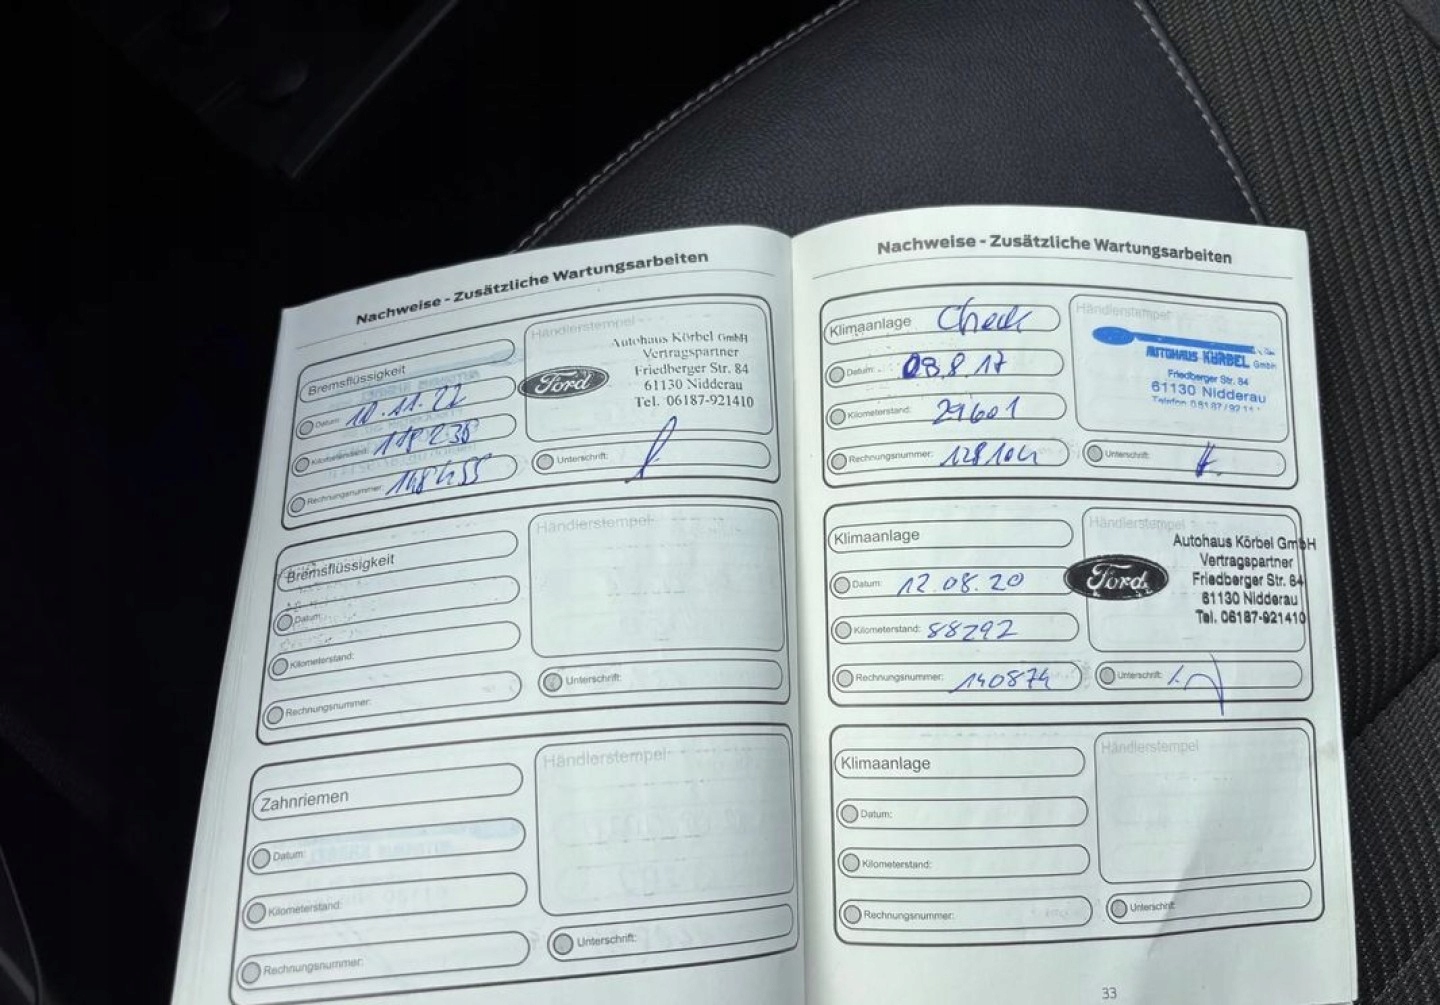 Nachweise - Zusätzliche Wartungsarbeiten
Bremsflüssigkeit
Datum: 10.11.22
Kilometerstand: 118230
Rechnungsnummer: 148455
Händlerstempel
Autohaus Körbel GmbH
Vertragspartner
Friedberger Str. 84
61130 Nidderau
Tel. 06187-921410
Ford
Unterschrift:
Bremsflüssigkeit
Datum:
Kilometerstand:
Rechnungsnummer:
Händlerstempel
Unterschrift:
Zahnriemen
Datum:
Kilometerstand:
Rechnungsnummer:
Händlerstempel
Unterschrift:
Nachweise - Zusätzliche Wartungsarbeiten
Klimaanlage Check
Datum: 03.8.17
Kilometerstand: 29601
Rechnungsnummer: 128104
Händlerstempel
AUTOHAUS KÖRBEL GmbH
Friedberger Str. 84
61130 Nidderau
Telefon 06187/9214
Unterschrift:
Klimaanlage
Datum: 12.08.20
Kilometerstand: 88292
Rechnungsnummer: 140874
Händlerstempel
Autohaus Körbel GmbH
Vertragspartner
Friedberger Str. 84
61130 Nidderau
Tel. 06187-921410
Ford
Unterschrift:
Klimaanlage
Datum:
Kilometerstand:
Rechnungsnummer:
Händlerstempel
Unterschrift:
33